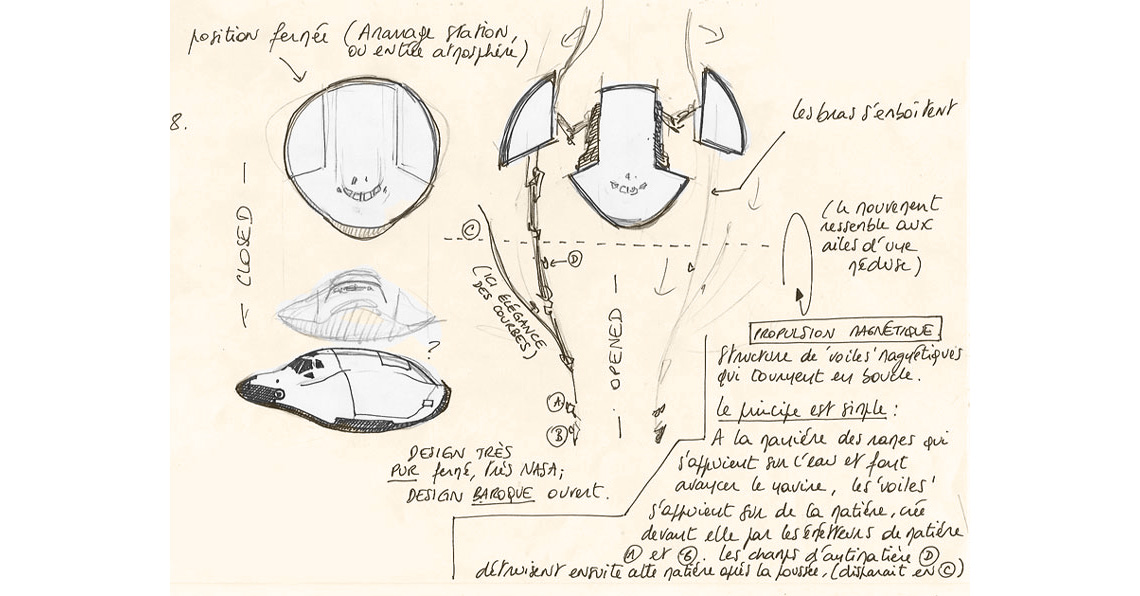 position fermée (Arrimage station,
ou entrée atmosphère)
8.
— CLOSED —
les bras s'emboîtent
(le mouvement
ressemble aux
ailes d'une
méduse)
C
D
(ICI ELEGANCE
DES COURBES)
— OPENED —
?
A
B
DESIGN TRÈS
PUR fermé, très NASA;
DESIGN BAROQUE ouvert.
PROPULSION MAGNÉTIQUE
Structure de 'voiles' magnétiques
qui tournent en boucle.
Le principe est simple :
A la manière des rames qui
s'appuient sur l'eau et font
avancer le navire, les 'voiles'
s'appuient sur de la matière, créée
devant elle par les émetteurs de matière
A et B. Les champs d'antimatière D
détruisent ensuite cette matière après la poussée, (disparait en C)